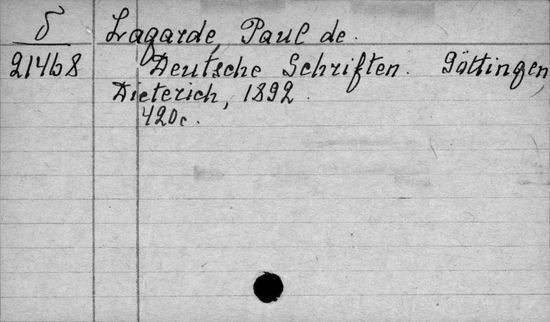 δ Lagarde, Paul de.
214b8 Deutsche Schriften. Göttingen
Dieterich, 1892.
420c.